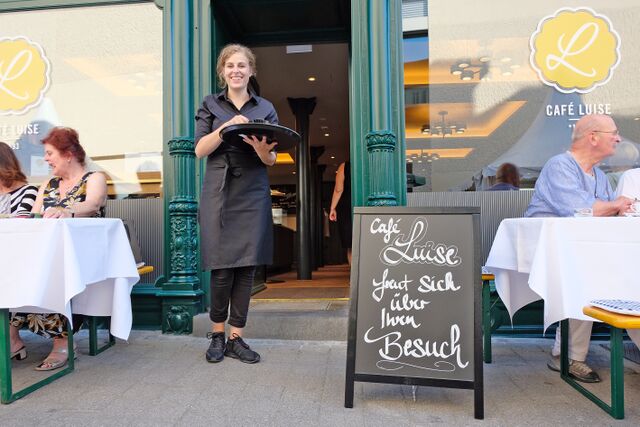 L
CAFÉ LUISE
L
LUISE
Café
Luise
freut sich
über
Ihren
Besuch